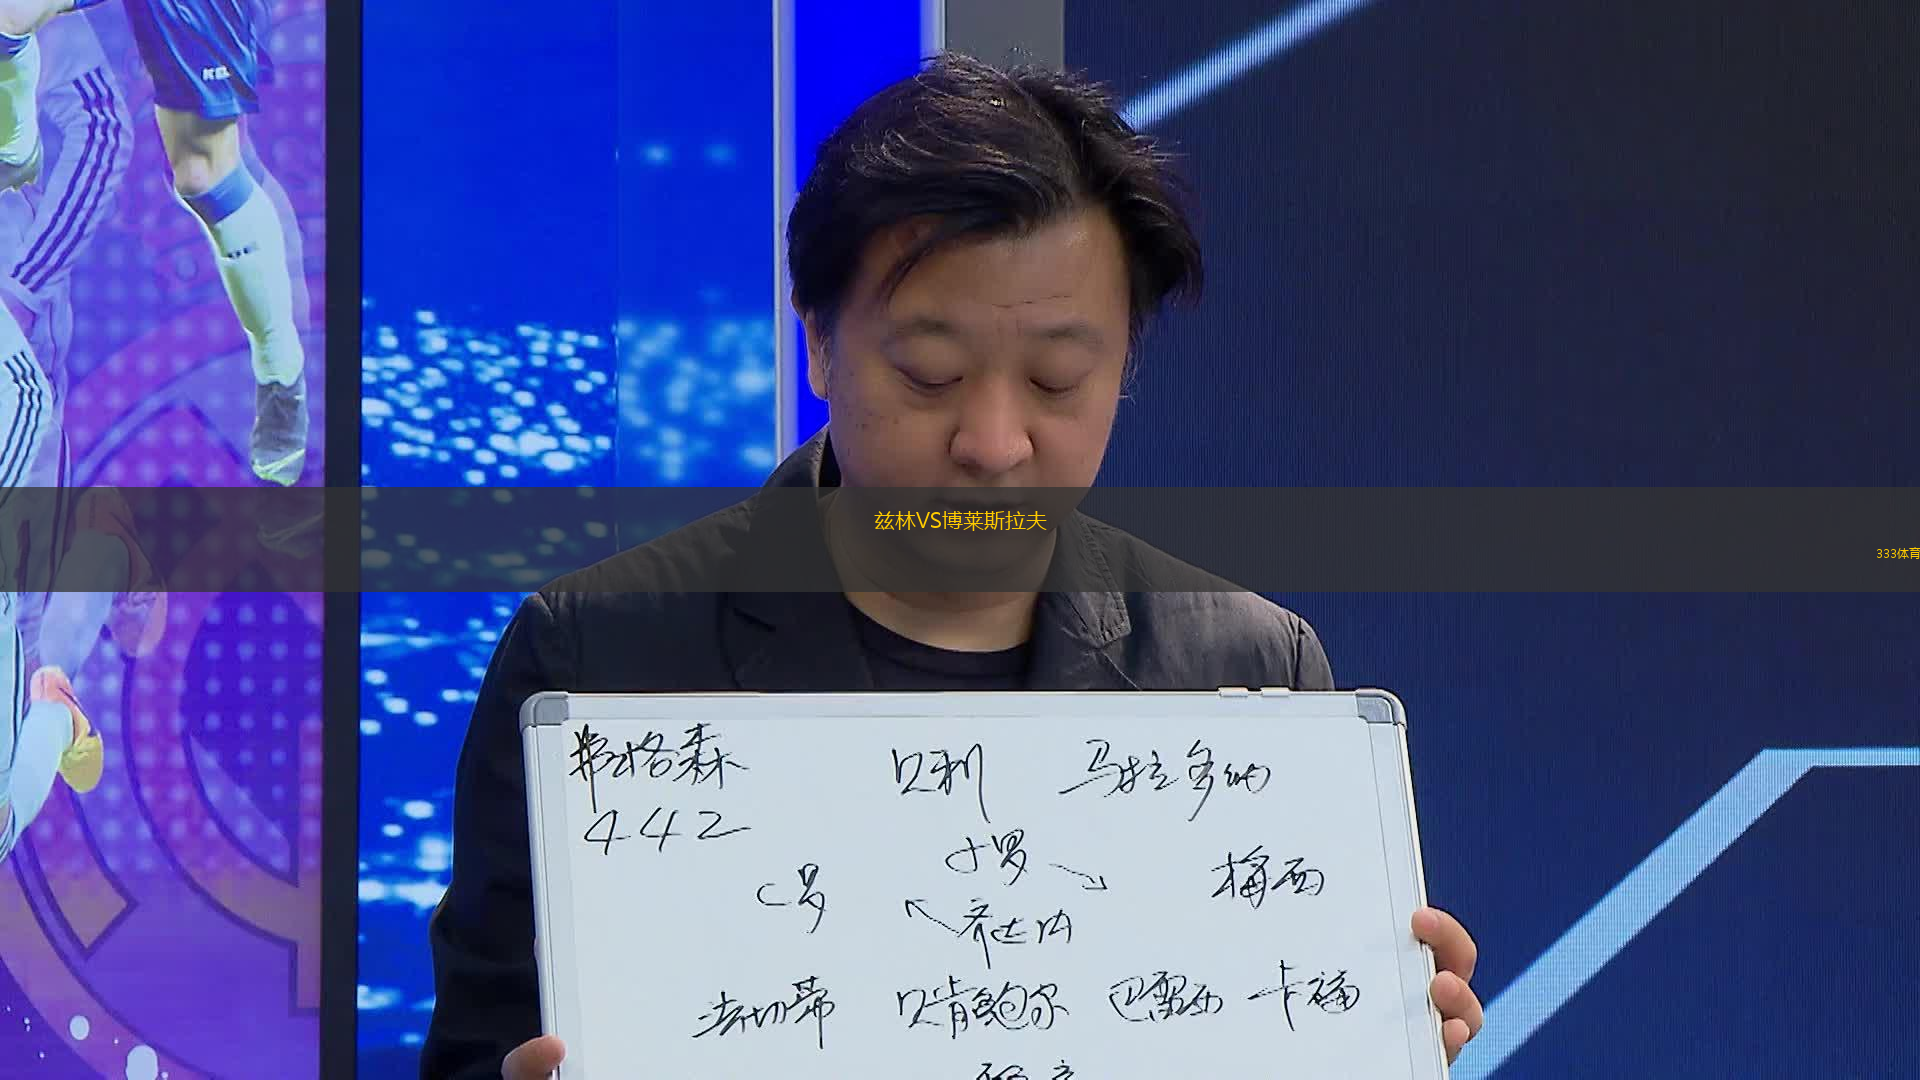 兹林VS博莱斯拉夫
333体育
弗格森 贝利 马拉多纳
442
小罗
C罗 梅西
齐达内
法切蒂 贝肯鲍尔 巴雷西 卡福